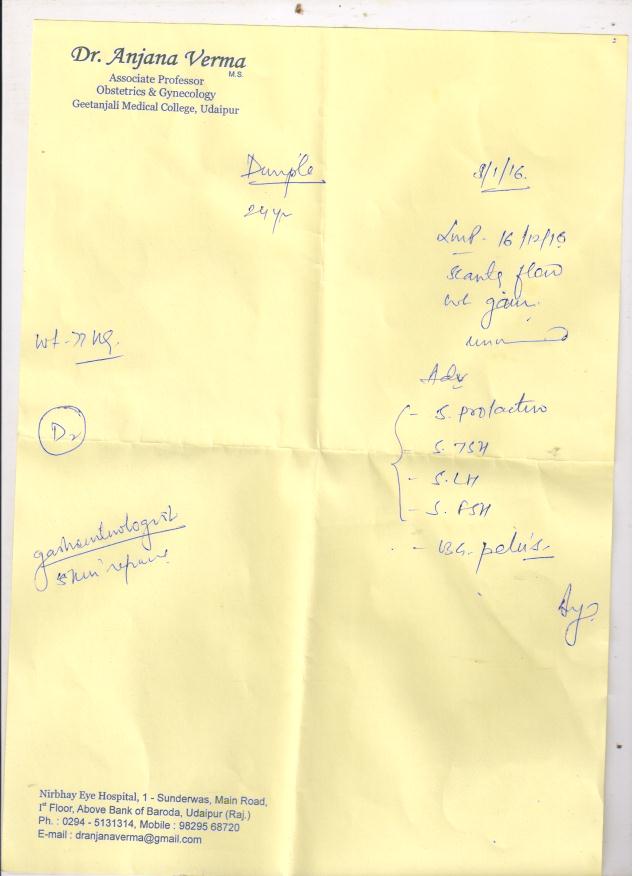 Dr. Anjana Verma
M.S.
Associate Professor
Obstetrics & Gynecology
Geetanjali Medical College, Udaipur
Dimple
8/1/16.
24 yr
Lmp - 16/12/15
scanty flow
wt gain.
wt -
Adv
- S. prolactin
- S. TSH
- S. LH
- S. FSH
- pelvis.
gastroenterologist
Nirbhay Eye Hospital, 1 - Sunderwas, Main Road,
Ist Floor, Above Bank of Baroda, Udaipur (Raj.)
Ph. : 0294 - 5131314, Mobile : 98295 68720
E-mail : dranjanaverma@gmail.com